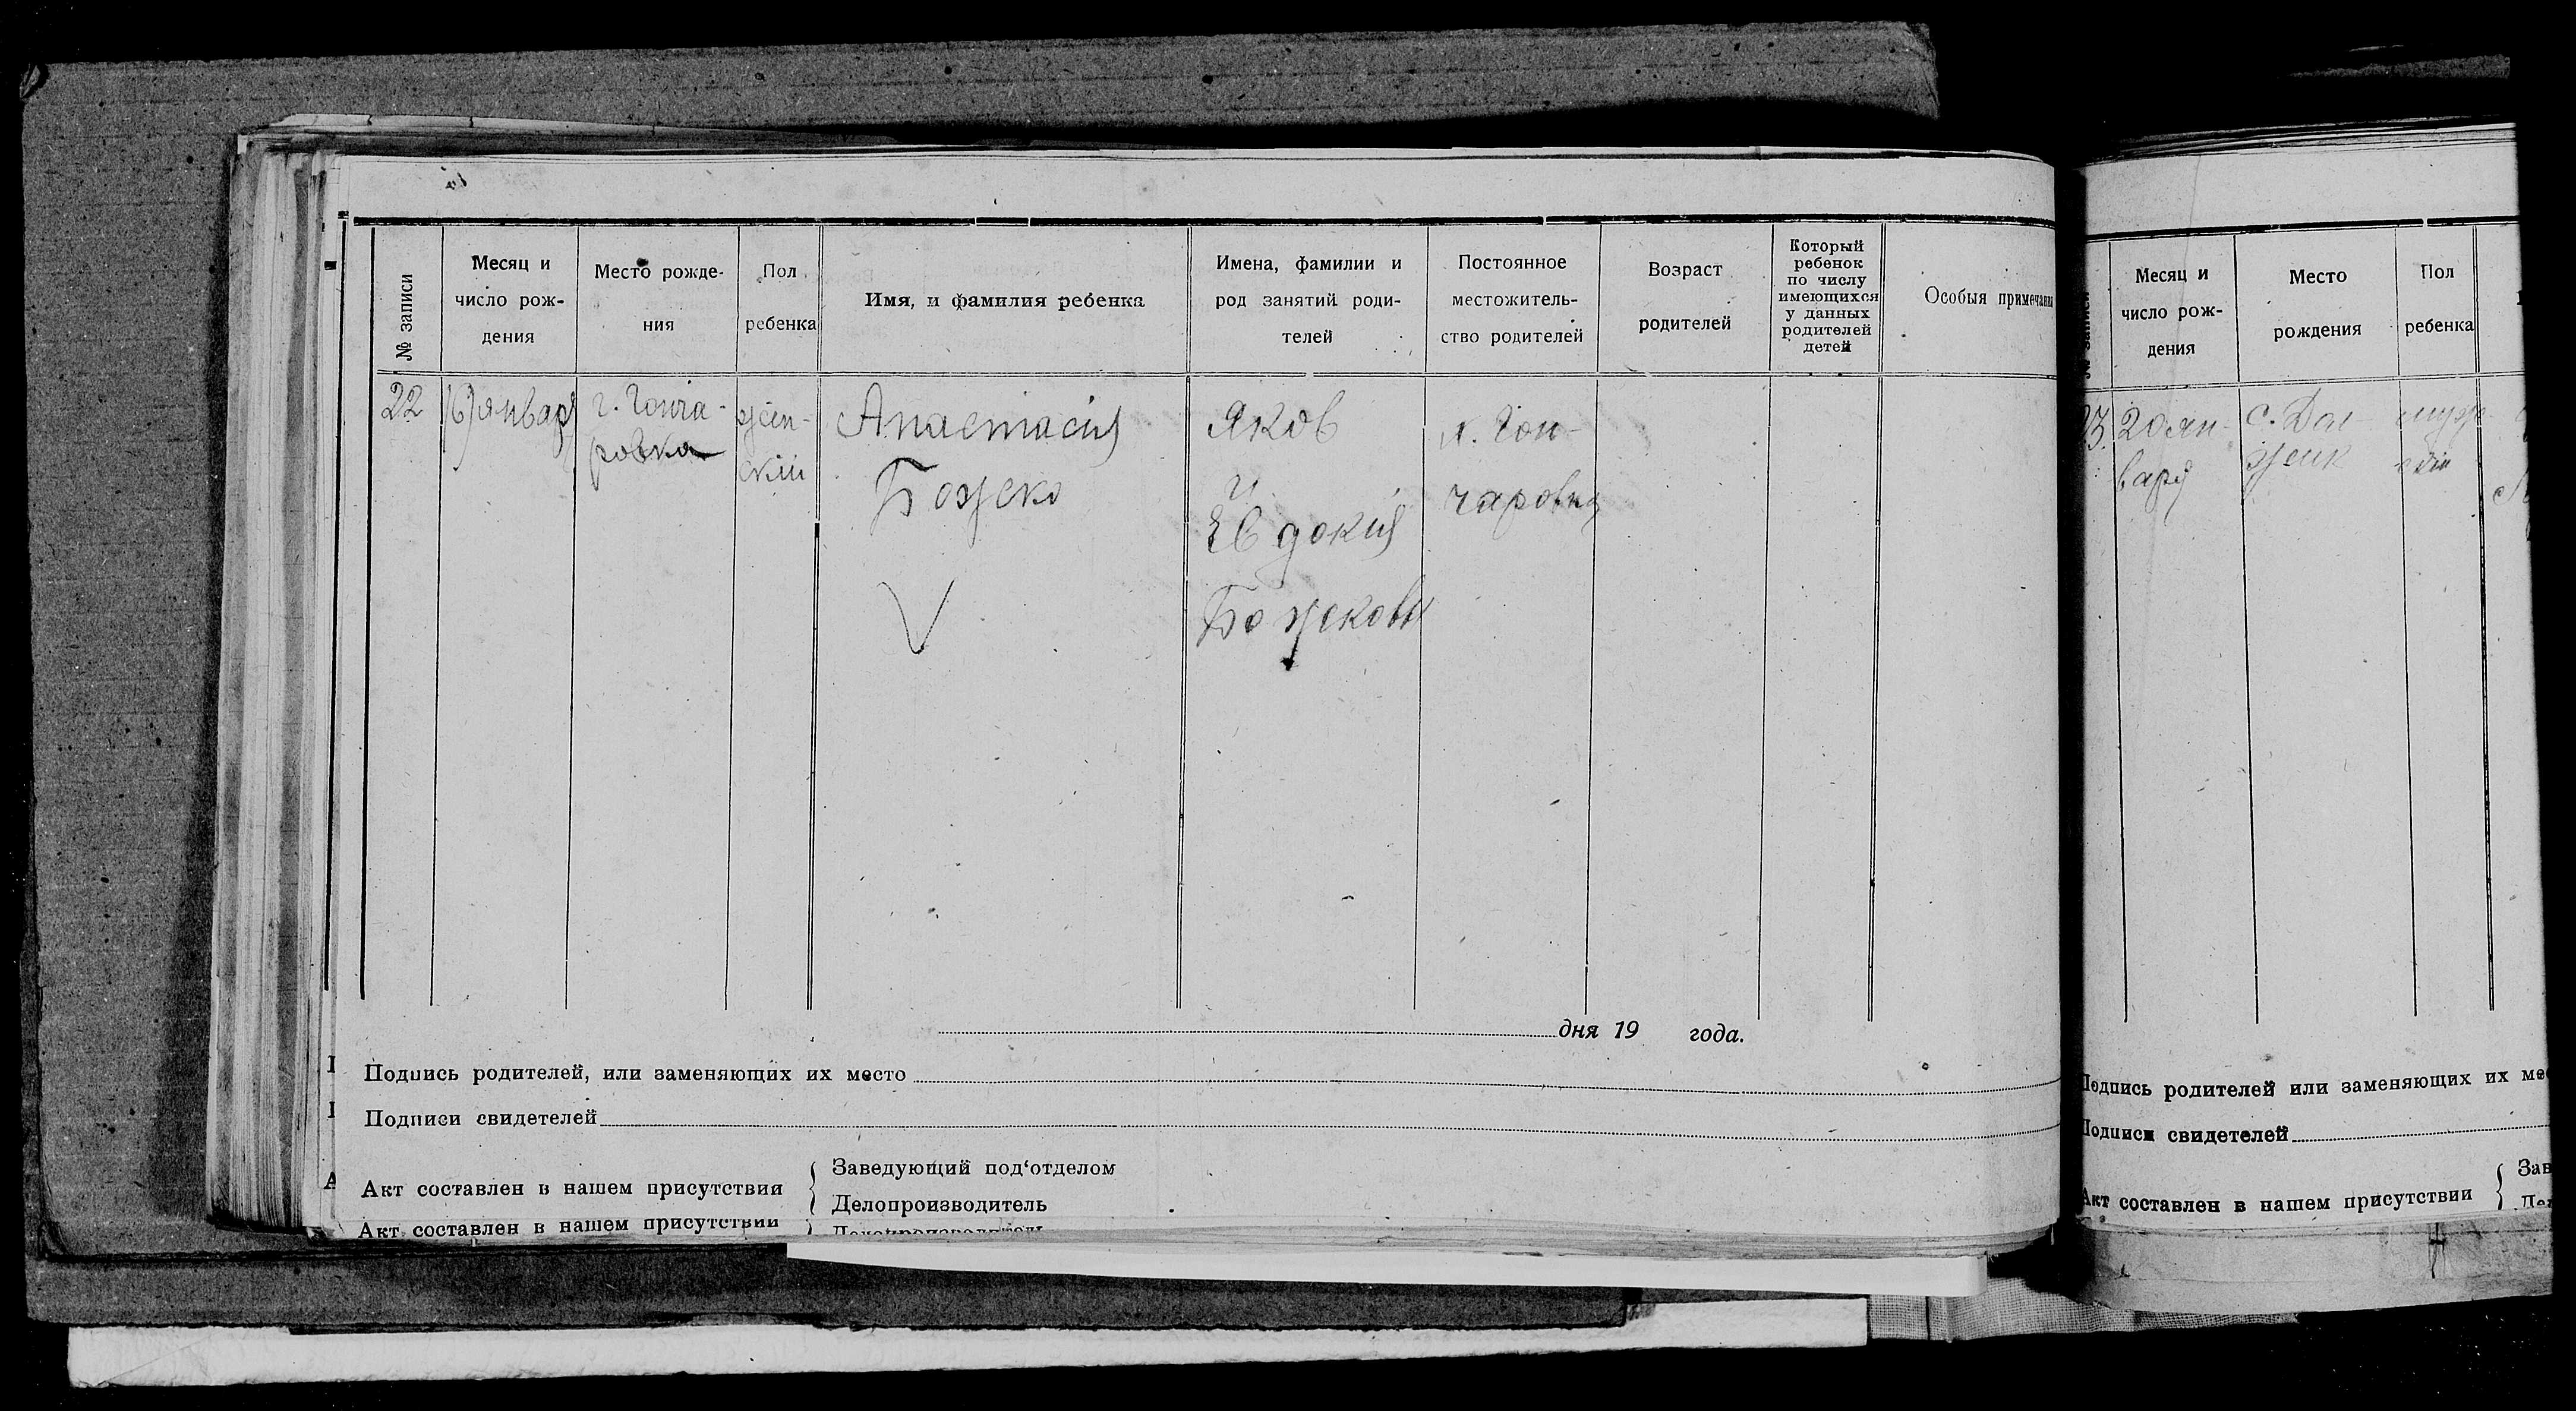 № записи
Месяц и
число рож-
дения
Место рожде-
ния
Пол
ребенка
Имя, и фамилия ребенка
Имена, фамилии и
род занятий роди-
телей
Постоянное
местожитель-
ство родителей
Возраст
родителей
Который
ребенок
по числу
имеющихся
у данных
родителей
детей
Особыя примечани
22
январ
ровка
жен-
скій
Анастасия
Божеко
Яков
и
Евдокия
Божековы
х. Гон-
чаровка
дня 19 года.
Подпись родителей, или заменяющих их место
Подписи свидетелей
Акт составлен в нашем присутствии
Заведующий под'отделом
Делопроизводитель
Акт составлен в нашем присутствии
Делопроизводитель
№ записи
Месяц и
число рож-
дения
Место
рождения
Пол
ребенка
20 ян-
варя
с. Дол-
жик
муж-
Подпись родителей или заменяющих их мес
Подписи свидетелей
Акт составлен в нашем присутствии
Зав